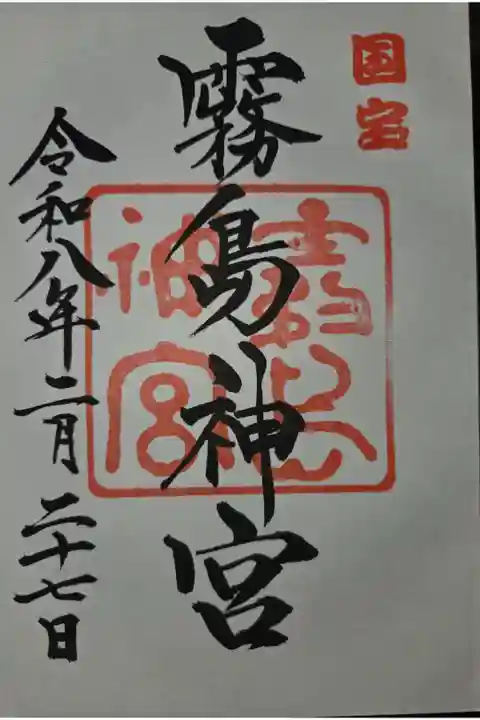 国宝
霧島神宮
霧島神宮
令和八年二月二十七日